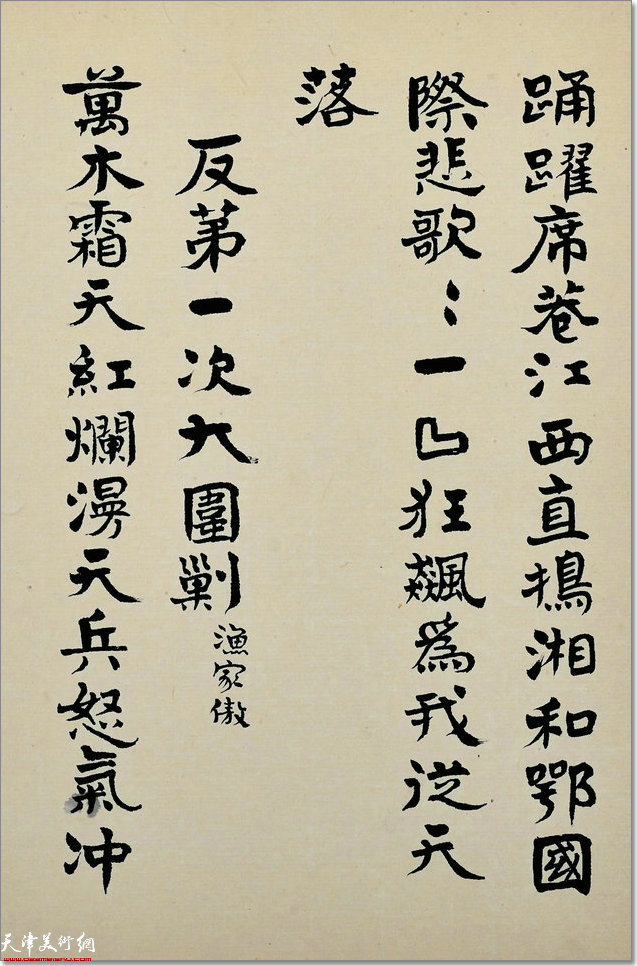 踊躍席卷江西直搗湘和鄂國
際悲歌〻一曲狂飆爲我從天
落
反第一次大圍剿
漁家傲
萬木霜天紅爛漫天兵怒氣冲
天津美術網